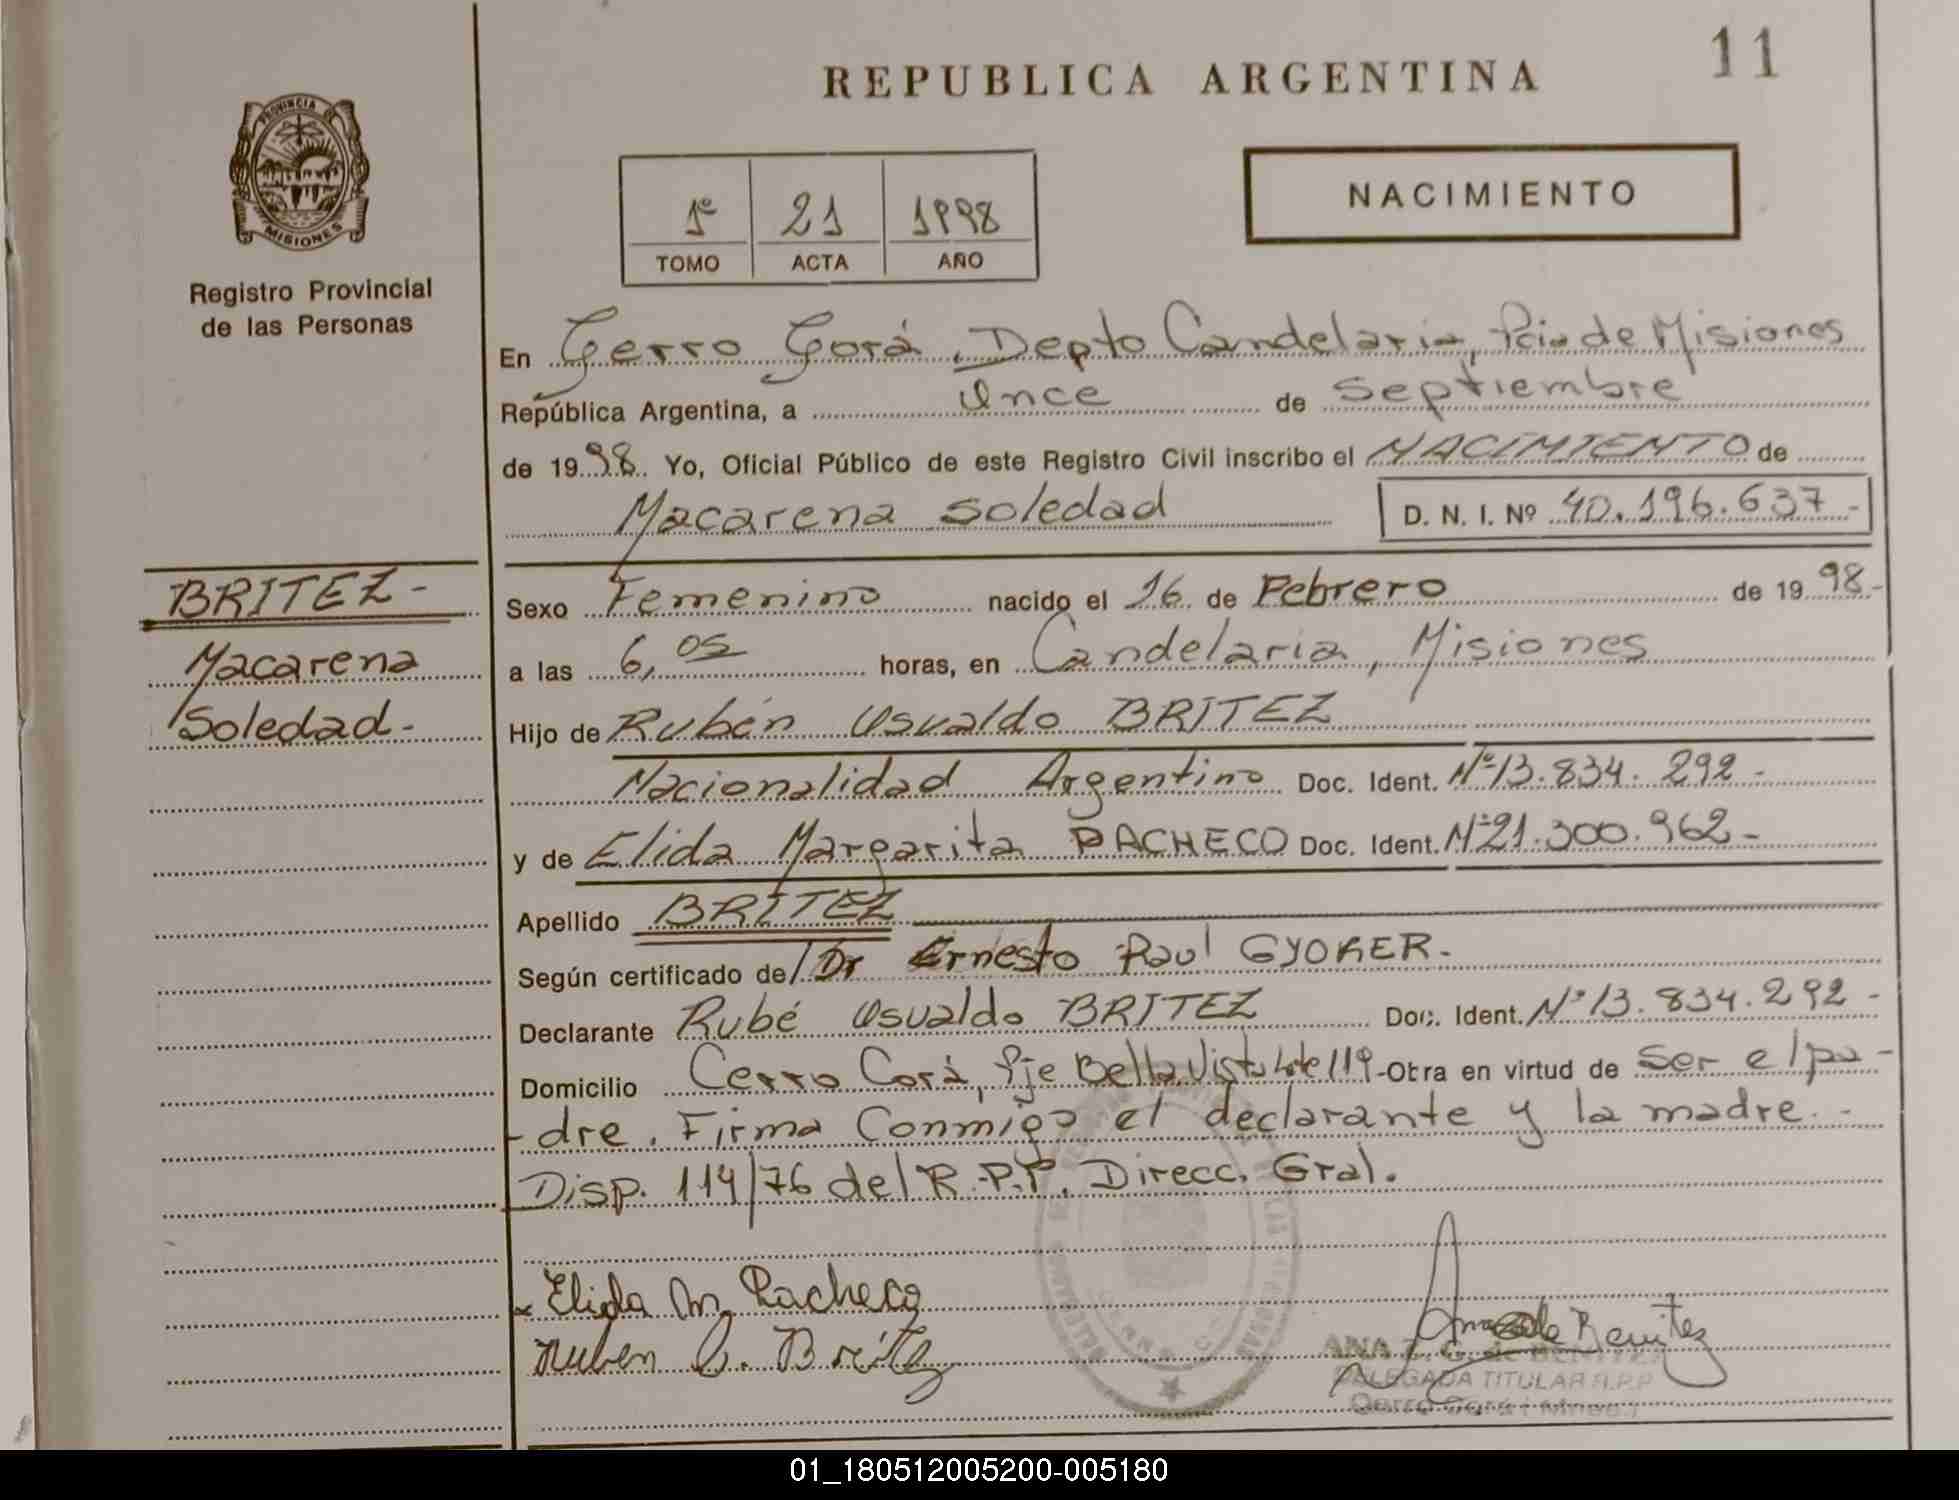 REPUBLICA ARGENTINA
11
PROVINCIA DE
MISIONES
Registro Provincial
de las Personas
1º 21 1998
TOMO ACTA AÑO
NACIMIENTO
En Cerro Corá, Depto Candelaria, Pcia de Misiones
República Argentina, a Once de Septiembre
de 1998. Yo, Oficial Público de este Registro Civil inscribo el NACIMIENTO de
Macarena Soledad
D. N. I. Nº 40.196.637-
BRITEZ-
Macarena
Soledad-
Sexo Femenino nacido el 16 de Febrero de 1998-
a las 6,05 horas, en Candelaria, Misiones
Hijo de Rubén Osvaldo BRITEZ
Nacionalidad Argentino Doc. Ident. Nº13.834.292-
y de Elida Margarita PACHECO Doc. Ident. Nº21.300.962-
Apellido BRITEZ
Según certificado de/ Dr Ernesto Raul GYORER-
Declarante Rubé Osvaldo BRITEZ Doc. Ident. Nº13.834.292-
Domicilio Cerro Corá, Pje Bella Vista Lote 119-Otra en virtud de ser el pa-
-dre. Firma Conmigo el declarante y la madre.-
Disp. 114/76 del R.P.P. Direcc. Gral.
Elida M. Pacheco
Ruben O. Britez
Ana de Benitez
ANA Z. G. de BENITEZ
DELEGADA TITULAR R.P.P
Cerro Corá (Mnes.)
01_180512005200-005180